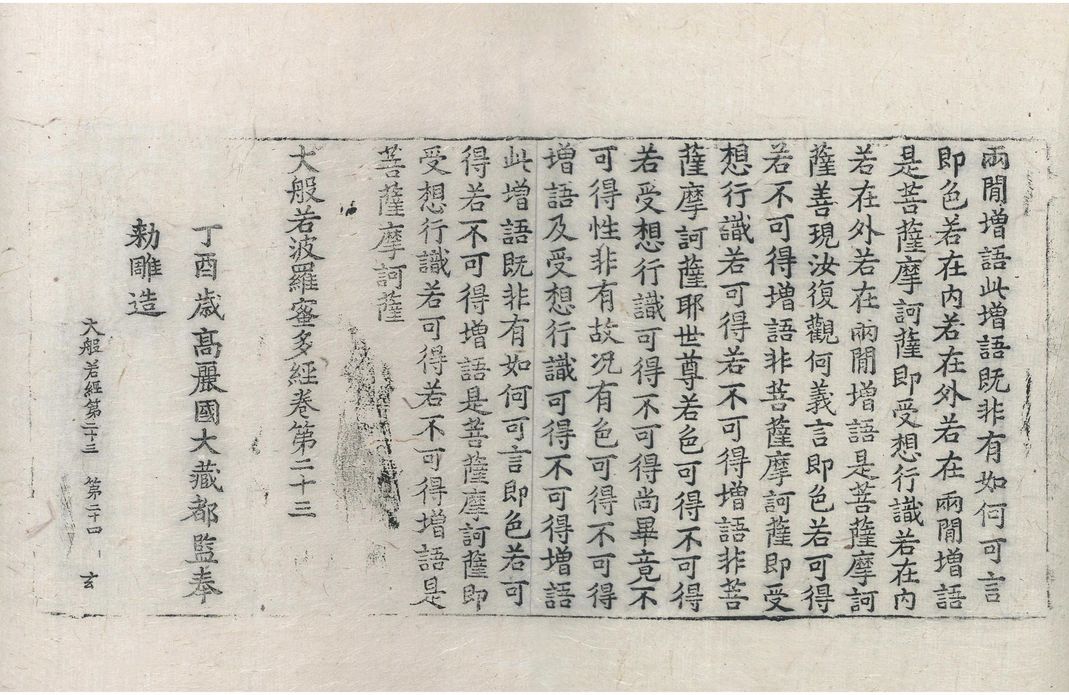 兩閒增語此增語旣非有如何可言
即色若在内若在外若在兩閒增語
是菩薩摩訶薩即受想行識若在内
若在外若在兩閒增語是菩薩摩訶
薩善現汝復觀何義言即色若可得
若不可得增語非菩薩摩訶薩即受
想行識若可得若不可得增語非菩
薩摩訶薩耶世尊若色可得不可得
若受想行識可得不可得尚畢竟不
可得性非有故况有色可得不可得
增語及受想行識可得不可得增語
此增語旣非有如何可言即色若可
得若不可得增語是菩薩摩訶薩即
受想行識若可得若不可得增語是
菩薩摩訶薩
大般若波羅蜜多經卷第二十三
丁酉歲高麗國大藏都監奉
勅雕造
大般若經第二十三 第二十四 玄